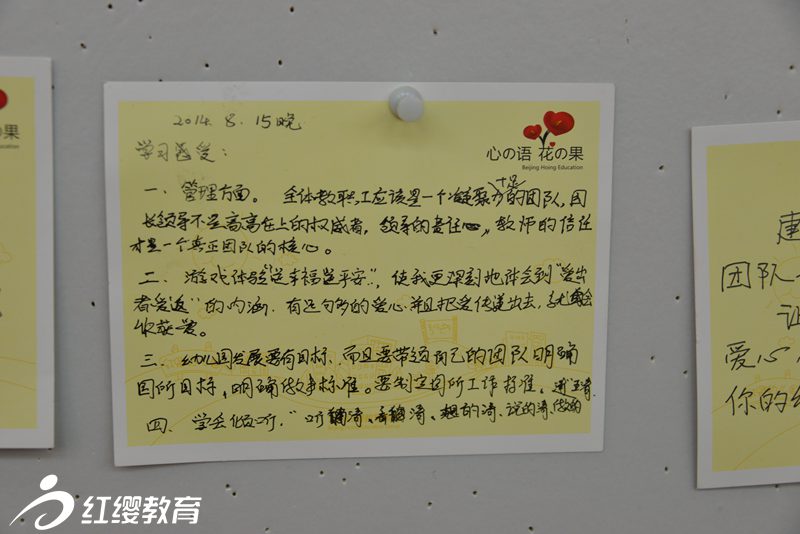 2014. 8. 15晚
心の语 花の果
Beijing Hoing Education
学习感受：
一、管理方面。全体教职工应该是一个凝聚力十足的团队，团
长领导不是高高在上的权威者，领导的责任心，教师的信任
才是一个真正团队的核心。
二、游戏体验"送幸福送平安"，使我更深刻地体会到"爱出
者爱返"的内涵，有足够多的爱心，并且把爱传递出去，
收获爱。
三、幼儿园发展要有目标，而且要带适自己的团队明确
园所目标，明确做事标准。要制定园所工作标准，
四、学会倾听，"听清、看清、想的清、说的清、做的
果
の果
Education
建
团队
让
爱心
你的
红缨教育